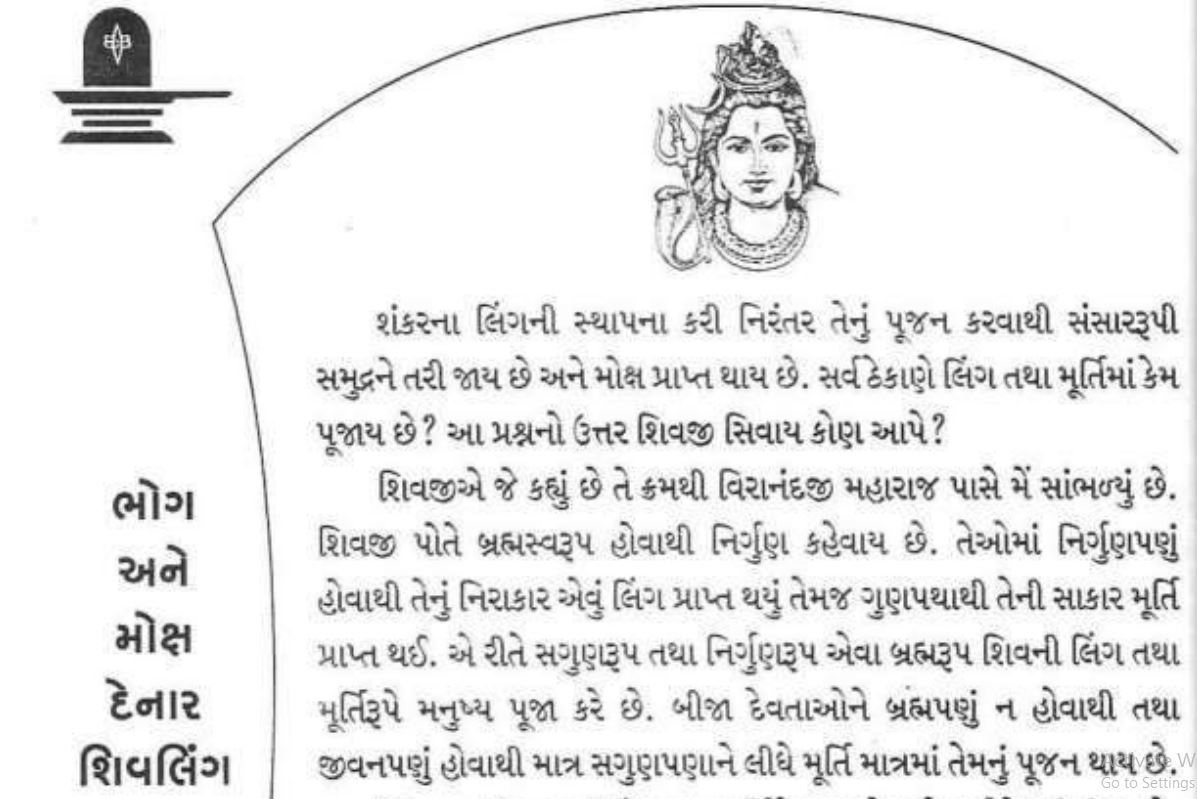 શંકરના લિંગની સ્થાપના કરી નિરંતર તેનું પૂજન કરવાથી સંસારરૂપી
સમુદ્રને તરી જાય છે અને મોક્ષ પ્રાપ્ત થાય છે. સર્વ ઠેકાણે લિંગ તથા મૂર્તિમાં કેમ
પૂજાય છે? આ પ્રશ્નનો ઉત્તર શિવજી સિવાય કોણ આપે?
શિવજીએ જે કહ્યું છે તે ક્રમથી વિરાનંદજી મહારાજ પાસે મેં સાંભળ્યું છે.
શિવજી પોતે બ્રહ્મસ્વરૂપ હોવાથી નિર્ગુણ કહેવાય છે. તેઓમાં નિર્ગુણપણું
હોવાથી તેનું નિરાકાર એવું લિંગ પ્રાપ્ત થયું તેમજ ગુણપથાથી તેની સાકાર મૂર્તિ
પ્રાપ્ત થઈ. એ રીતે સગુણરૂપ તથા નિર્ગુણરૂપ એવા બ્રહ્મરૂપ શિવની લિંગ તથા
મૂર્તિરૂપે મનુષ્ય પૂજા કરે છે. બીજા દેવતાઓને બ્રહ્મપણું ન હોવાથી તથા
જીવનપણું હોવાથી માત્ર સગુણપણાને લીધે મૂર્તિ માત્રમાં તેમનું પૂજન થાય છે.
ભોગ
અને
મોક્ષ
દેનાર
શિવલિંગ
Activate W
Go to Settings